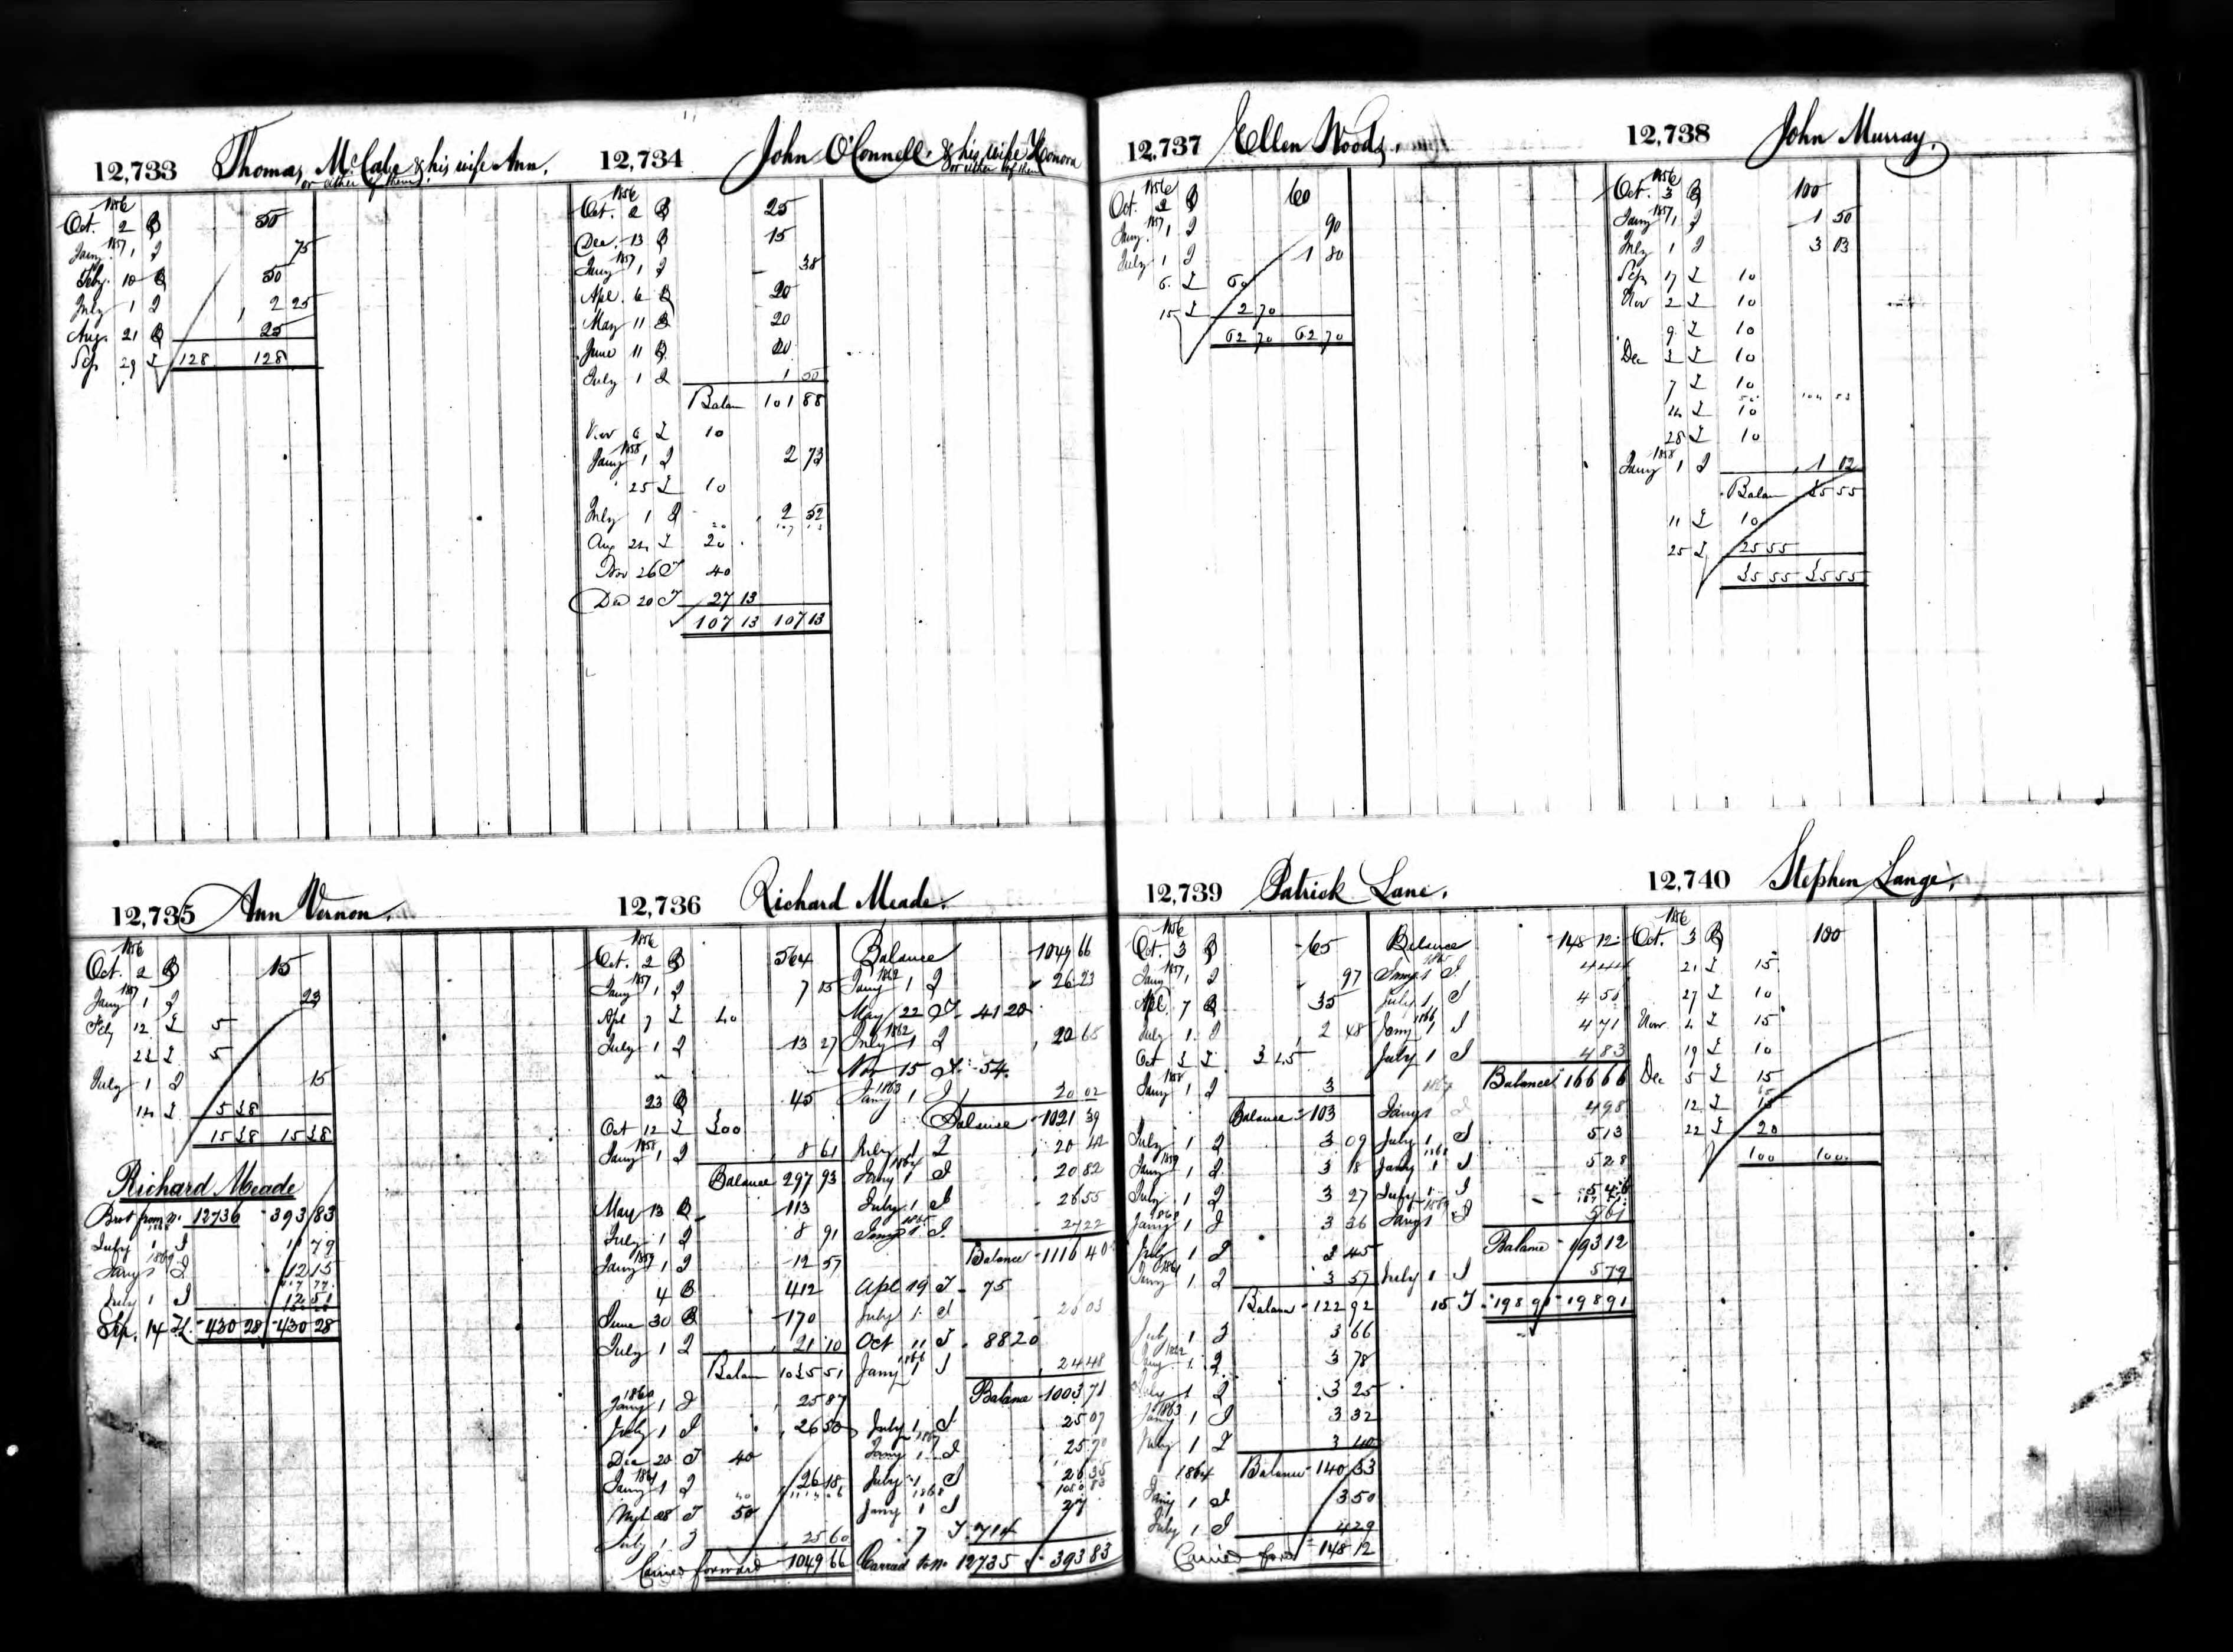 12,733 Thomas McCabe & his wife Ann.
or either of them
1856
Oct. 2 50
1857
Jany. 1 75
Feby. 10 50
July 1 2 25
Aug. 21 25
Sep 29 128 128
12,734 John O'Connell & his wife Honora
or either of them
1856
Oct. 2 25
Dec. 13 15
1857
Jany 1 38
Apl. 6 20
May 11 20
June 11 20
July 1 1 50
Balan 101 88
Nov 6 10
1858
Jany 1 2 73
25 10
July 1 2 52
Aug 24 20
Nov 26 40
Dec 20 27 13
107 13 107 13
12,735 Ann Vernon.
1856
Oct. 2 15
1857
Jany 1 23
Feby 12 5
22 5
July 1 15
14 5 38
15 38 15 38
Richard Meade
Brot from No. 12736 393 83
July 1 11 79
1869
Jany 1 12 15
July 1 12 51
Sep. 14 430 28 430 28
12,736 Richard Meade.
1856
Oct. 2 564
1857
Jany 1 7 15
Apl 7 40
July 1 13 27
23 45
Oct 12 300
1858
Jany 1 8 61
Balance 297 93
May 13 113
July 1 8 91
1859
Jany 1 12 57
4 412
June 30 170
July 1 21 10
Balan 1035 51
1860
Jany 1 25 87
July 1 26 50
Dec 20 40
1861
Jany 1 26 18
50
July 1 25 60
Carried forward 1049 66
Balance 1049 66
1862
Jany 1 26 23
May 22 41 20
1862
July 1 20 68
Nov 15 54
1863
Jany 1 20 02
Balance 1021 39
July 1 20 42
1864
Jany 1 20 82
July 1 26 55
1865
Jany 1 27 22
Balance 1116 40
Apl 19 75
July 1 26 03
Oct 11 88 20
1866
Jany 1 24 48
Balance 1003 71
July 1 25 07
1867
Jany 1 25 70
July 1 26 35
1868
Jany 1 27
7 714
Carried to No. 12735 393 83
12,737 Ellen Woods.
1856
Oct. 2 60
1857
Jany. 1 90
July 1 1 80
6 60
15 2 70
62 70 62 70
12,738 John Murray.
1856
Oct. 3 100
1857
Jany 1 1 50
July 1 3 03
Sep 17 10
Nov 2 10
9 10
Dec 3 10
7 10
14 10
28 10
1858
Jany 1 1 02
Balan 35 55
11 10
25 25 55
35 55 35 55
12,739 Patrick Lane.
1856
Oct. 3 65
1857
Jany 1 97
Apl. 7 35
July 1 2 48
Oct 3 3 45
1858
Jany 1 3
Balance 103
July 1 3 09
1859
Jany 1 3 18
July 1 3 27
1860
Jany 1 3 36
July 1 3 45
1861
Jany 1 3 57
Balan 122 92
July 1 3 66
Jany 1 3 78
July 1 3 25
1863
Jany 1 3 32
July 1 3 40
1864 Balance 140 33
Jany 1 3 50
July 1 4 29
Carried forw 148 12
Balance 148 12
1865
Jany 1 4 44
July 1 4 56
1866
Jany 1 4 71
July 1 4 83
Balance 166 66
1867
Jany 1 4 98
July 1 5 13
1868
Jany 1 5 28
July 1 5 46
1869
Jany 1 5 61
Balance 193 12
July 1 5 79
15 198 91 198 91
12,740 Stephen Lange.
1856
Oct. 3 100
21 15
27 10
Nov. 4 15
19 10
Dec 5 15
12 15
22 20
100 100